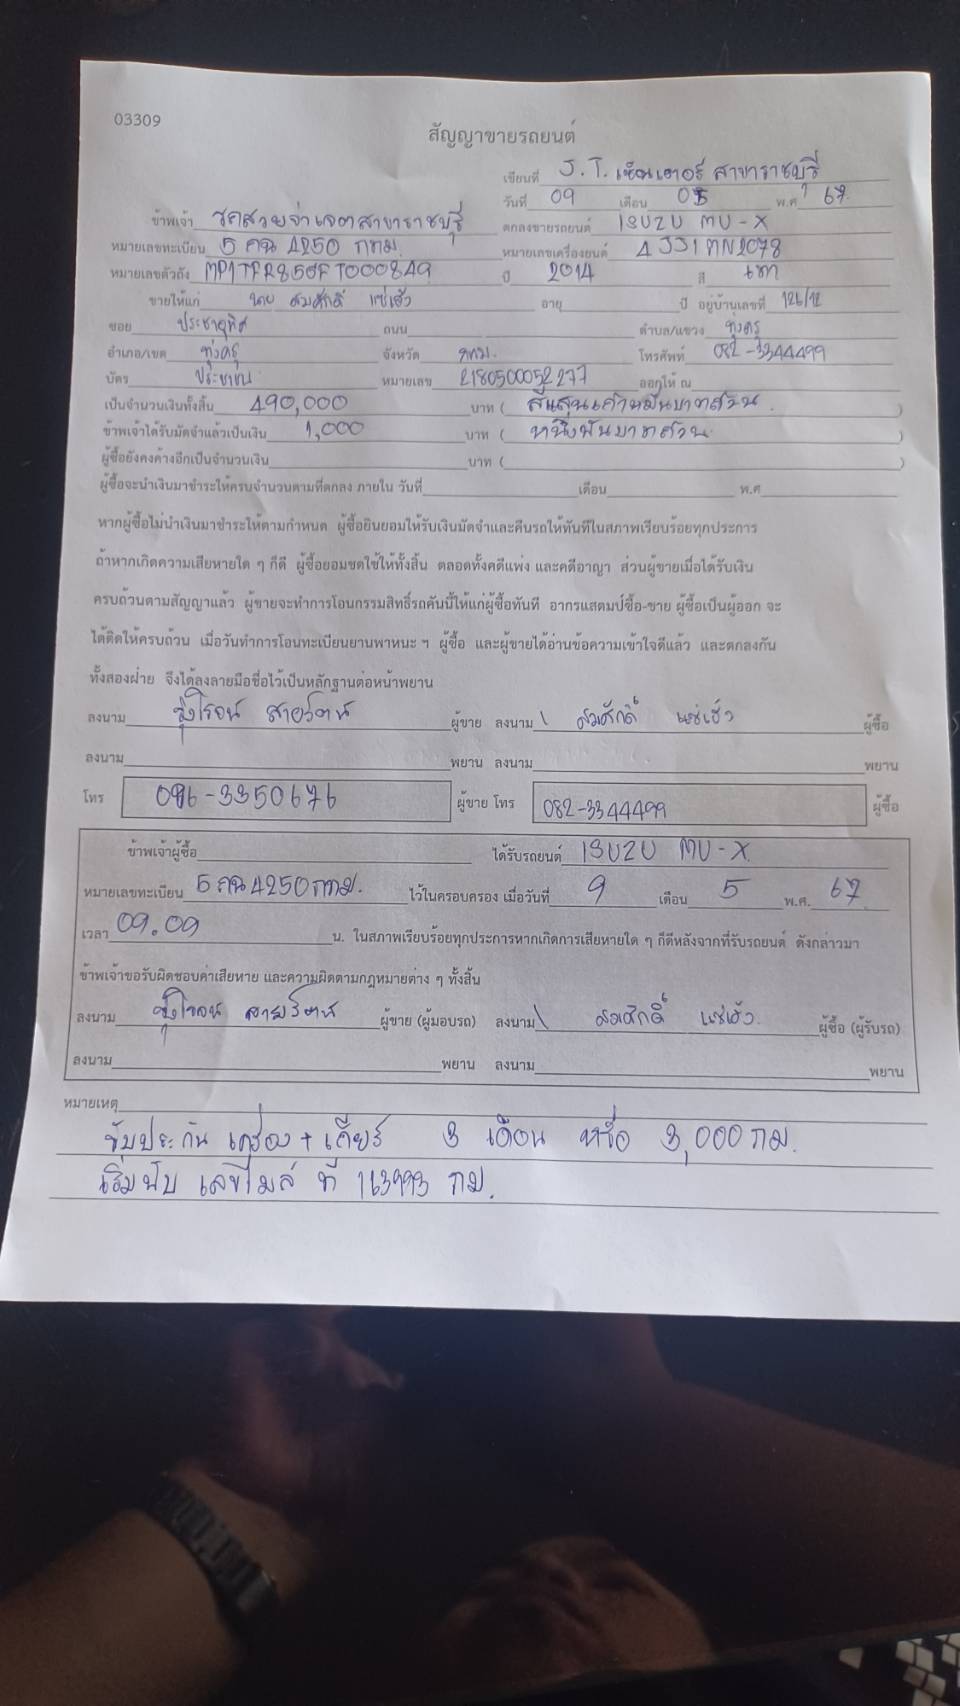 03309
สัญญาขายรถยนต์
เขียนที่ J.T. เซ็นเตอร์ สาขาราชบุรี
วันที่ 09 เดือน 05 พ.ศ 67
ข้าพเจ้า รถสวยจ่าเจตสาขาราชบุรี ตกลงขายรถยนต์ ISUZU MU-X
หมายเลขทะเบียน 5 กฉ 4250 กทม. หมายเลขเครื่องยนต์ 4JJ1MN2078
หมายเลขตัวถัง MP1TFR85JFT000849 ปี 2014 สี เทา
ขายให้แก่ นาย สมศักดิ์ แซ่เฮ้ว อายุ ปี อยู่บ้านเลขที่ 126/12
ซอย ประชาอุทิศ ถนน ตำบล/แขวง ทุ่งครุ
อำเภอ/เขต ทุ่งครุ จังหวัด กทม. โทรศัพท์ 082-3344499
บัตร ประชาชน หมายเลข 2180500052277 ออกให้ ณ
เป็นจำนวนเงินทั้งสิ้น 490,000 บาท ( สี่แสนเก้าหมื่นบาทถ้วน )
ข้าพเจ้าได้รับมัดจำแล้วเป็นเงิน 1,000 บาท ( หนึ่งพันบาทถ้วน )
ผู้ซื้อยังคงค้างอีกเป็นจำนวนเงิน บาท ( )
ผู้ซื้อจะนำเงินมาชำระให้ครบจำนวนตามที่ตกลง ภายใน วันที่ เดือน พ.ศ
หากผู้ซื้อไม่นำเงินมาชำระให้ตามกำหนด ผู้ซื้อยินยอมให้รับเงินมัดจำและคืนรถให้ทันทีในสภาพเรียบร้อยทุกประการ
ถ้าหากเกิดความเสียหายใด ๆ ก็ดี ผู้ซื้อยอมชดใช้ให้ทั้งสิ้น ตลอดทั้งคดีแพ่ง และคดีอาญา ส่วนผู้ขายเมื่อได้รับเงิน
ครบถ้วนตามสัญญาแล้ว ผู้ขายจะทำการโอนกรรมสิทธิ์รถคันนี้ให้แก่ผู้ซื้อทันที อากรแสตมป์ซื้อ-ขาย ผู้ซื้อเป็นผู้ออก จะ
ได้ติดให้ครบถ้วน เมื่อวันทำการโอนทะเบียนยานพาหนะ ฯ ผู้ซื้อ และผู้ขายได้อ่านข้อความเข้าใจดีแล้ว และตกลงกัน
ทั้งสองฝ่าย จึงได้ลงลายมือชื่อไว้เป็นหลักฐานต่อหน้าพยาน
ลงนาม รุ่งโรจน์ ผู้ขาย ลงนาม สมศักดิ์ แซ่เฮ้ว ผู้ซื้อ
ลงนาม พยาน ลงนาม พยาน
โทร 086-3350676 ผู้ขาย โทร 082-3344499 ผู้ซื้อ
ข้าพเจ้าผู้ซื้อ ได้รับรถยนต์ ISUZU MU-X
หมายเลขทะเบียน 5 กฉ 4250 กทม. ไว้ในครอบครอง เมื่อวันที่ 9 เดือน 5 พ.ศ. 67
เวลา 09.09 น. ในสภาพเรียบร้อยทุกประการหากเกิดการเสียหายใด ๆ ก็ดีหลังจากที่รับรถยนต์ ดังกล่าวมา
ข้าพเจ้าขอรับผิดชอบค่าเสียหาย และความผิดตามกฎหมายต่าง ๆ ทั้งสิ้น
ลงนาม รุ่งโรจน์ ผู้ขาย (ผู้มอบรถ) ลงนาม สมศักดิ์ แซ่เฮ้ว ผู้ซื้อ (ผู้รับรถ)
ลงนาม พยาน ลงนาม พยาน
หมายเหตุ
รับประกัน เครื่อง + เกียร์ 3 เดือน หรือ 3,000 กม.
เริ่มนับ เลขไมล์ ที่ 163993 กม.